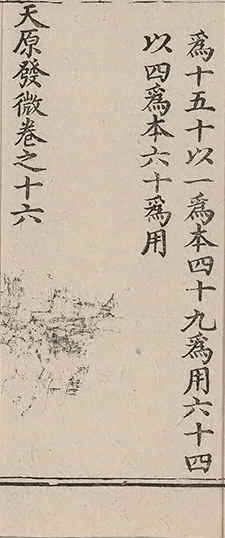 爲十五十以一爲本四十九爲用六十四
以四爲本六十爲用
天原發微卷之十六